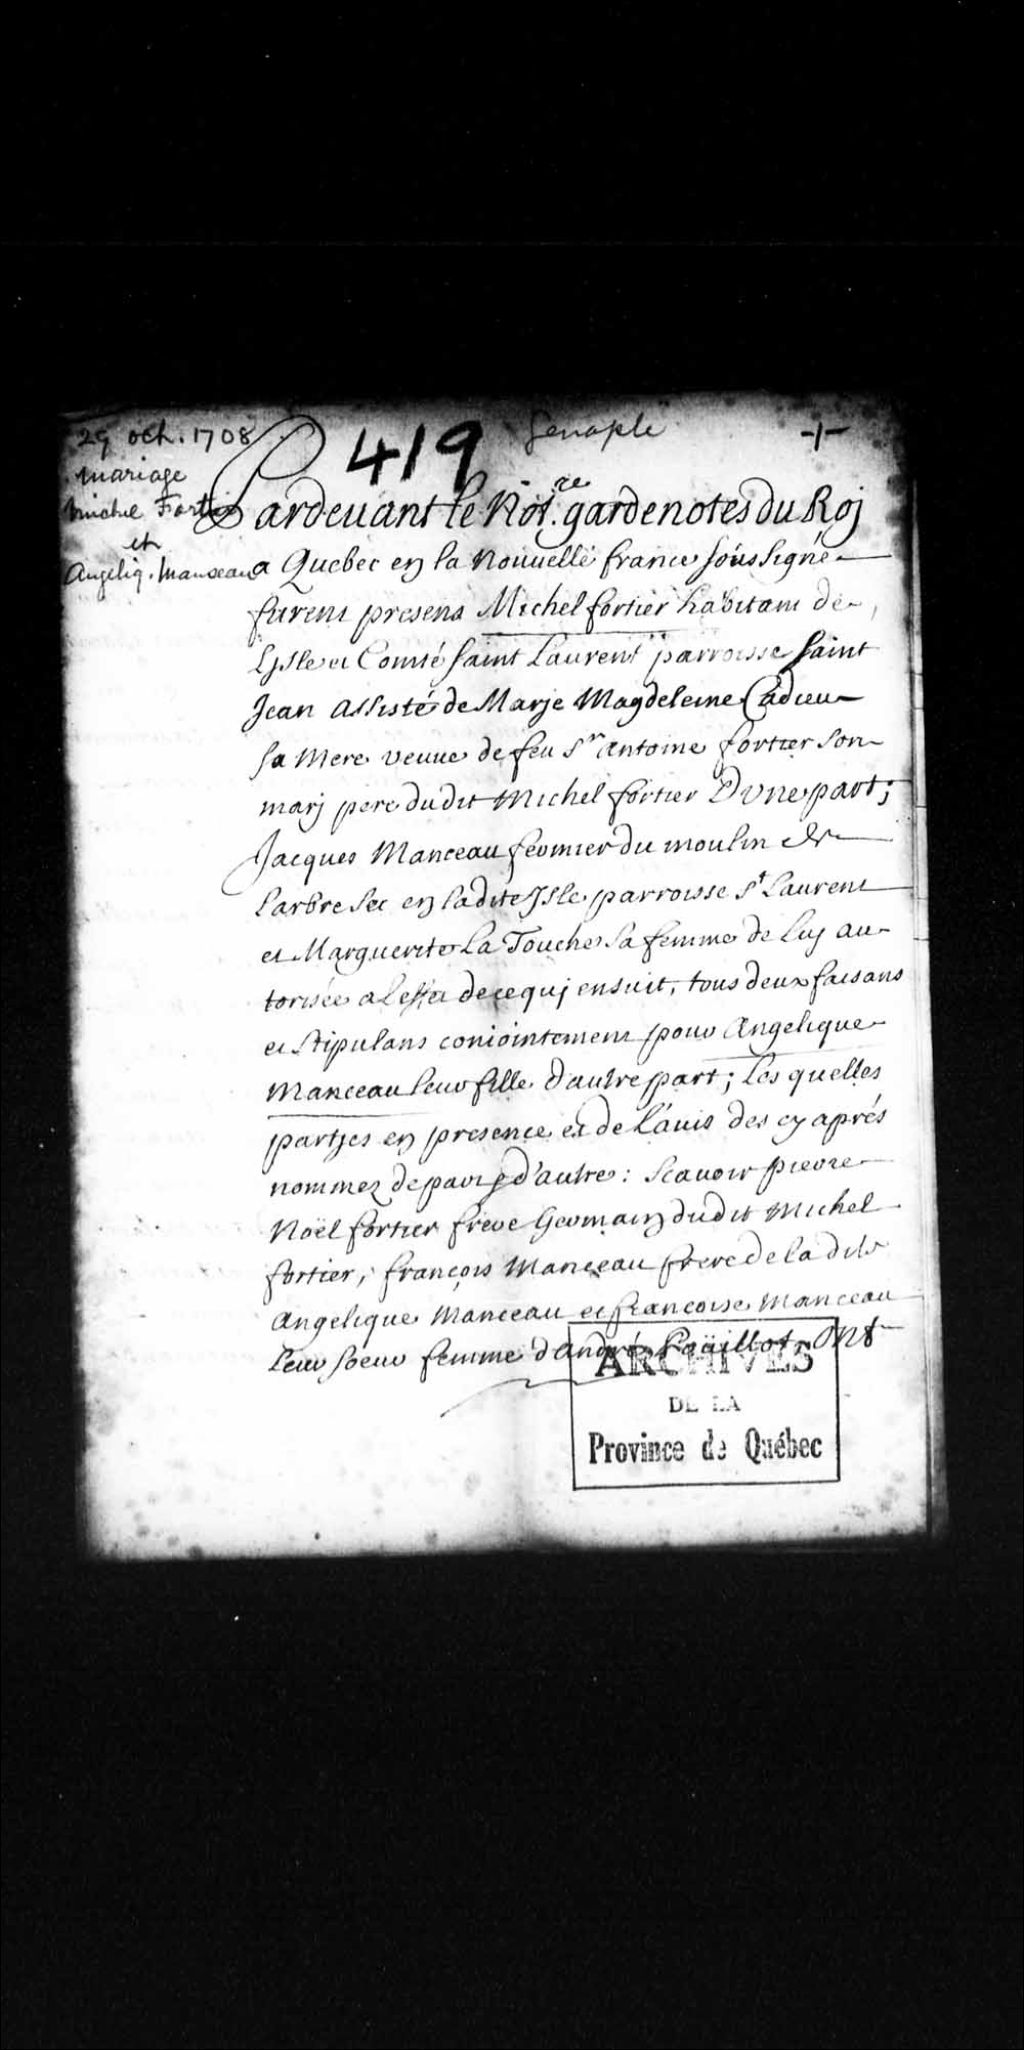 29 oct. 1708
mariage
Michel Fortier
et
Angeliq. Manseau
419
Genaple
Pardeuant le Not.re gardenotes du Roj
a Quebec en la Nouuelle france soussigné
furent presens Michel fortier habitant de
Lisle et Comté Saint Laurent parroisse Saint
Jean Assisté de Marje Magdeleine Cadieu
sa Mere veuue de feu Sr Antoine fortier son
marj pere dudit Michel fortier D'Vne part;
Jacques Manceau fermier du moulin de
Larbre sec en ladite Isle parroisse St Laurent
et Marguerite La Touche sa femme de luy au-
torisée a l'effet de ce quj ensuit, tous deux faisans
et stipulans conjointement pour Angelique
Manceau leur fille d'autre part; Les quelles
partjes en presence et de l'auis des cy aprés
nommez de part & d'autre: Scauoir pierre
Noël fortier frere Germain dudit Michel
fortier, françois Manceau frere de la dite
Angelique Manceau et francoise Manceau
leur soeur femme d'André Paüillot, Ont
ARCHIVES
DE LA
Province de Québec